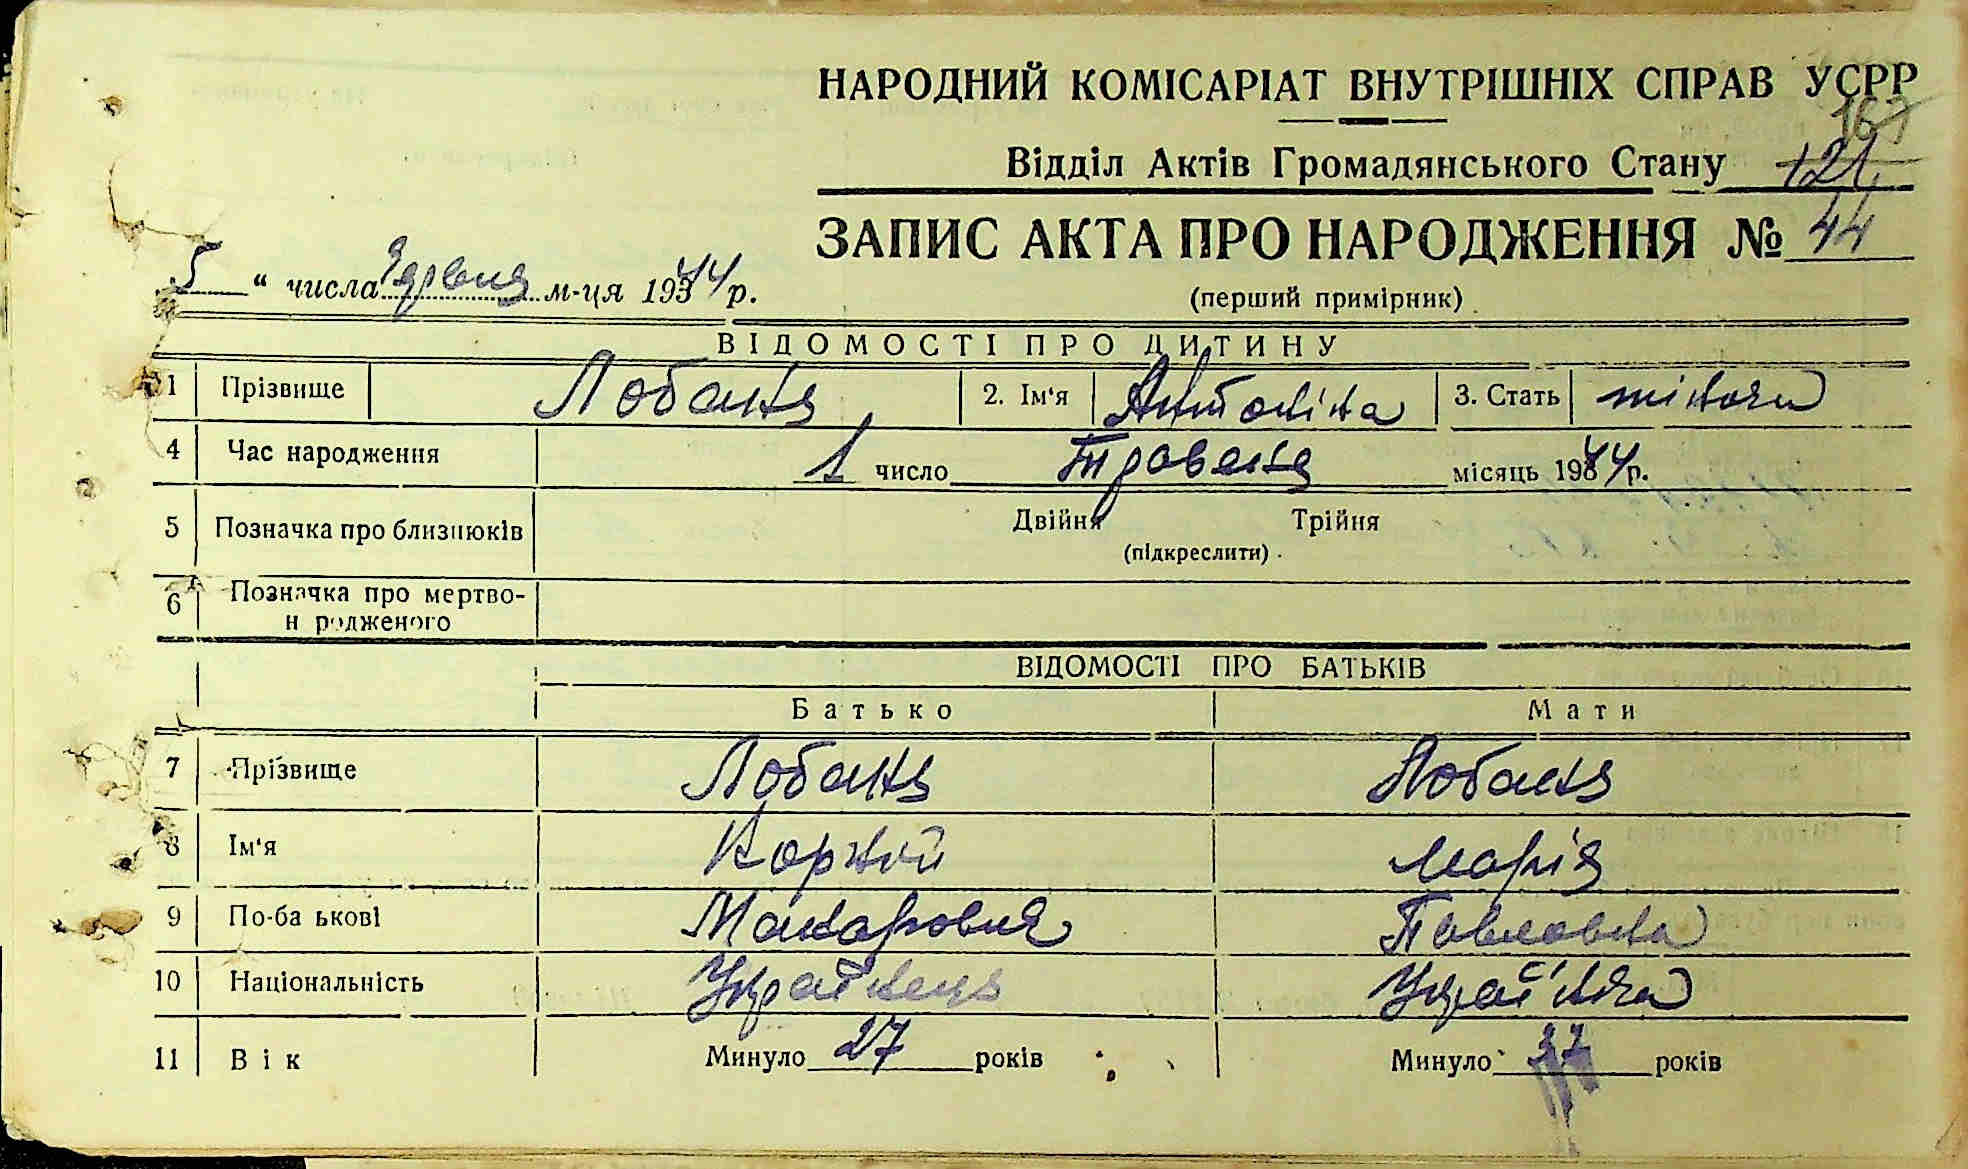 НАРОДНИЙ КОМІСАРІАТ ВНУТРІШНІХ СПРАВ УСРР
167
Відділ Актів Громадянського Стану 121
ЗАПИС АКТА ПРО НАРОДЖЕННЯ № 44
5 " числа Червня м-ця 1944 р.
(перший примірник)
ВІДОМОСТІ ПРО ДИТИНУ
1 Прізвище Лобаня 2. Ім'я Антоніна 3. Стать жіноча
4 Час народження 1 число Травня місяць 1944 р.
5 Позначка про близнюків Двійня Трійня
(підкреслити)
6 Позначка про мертво-
н родженого
ВІДОМОСТІ ПРО БАТЬКІВ
Батько Мати
7 Прізвище Лобаня Лобаня
8 Ім'я Корній Марія
9 По-ба ькові Макарович Павловна
10 Національність Українець Українка
11 Вік Минуло 27 років Минуло років